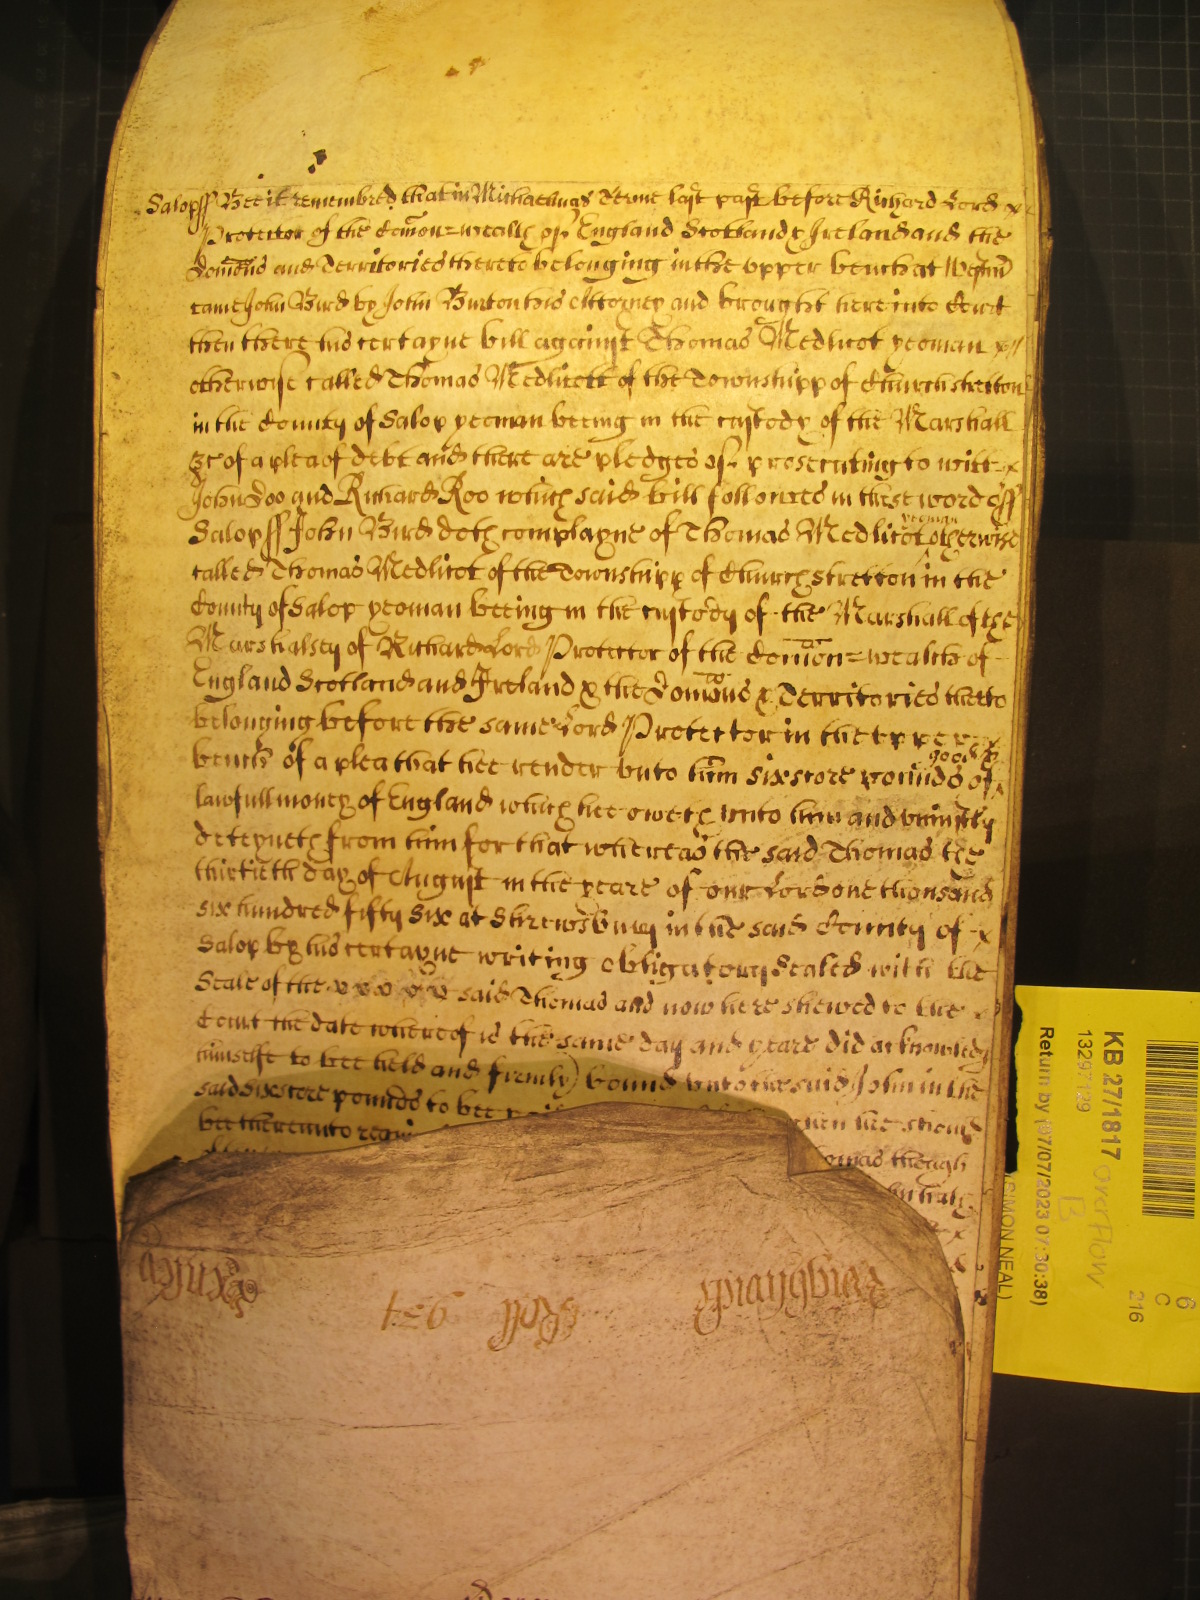 Salop ss Bee it remembred that in Michaelmas Terme last past before Richard Lord x
Protector of the Comon=wealth of England Scotland & Ireland and the
Domons and Territories thereto belonging in the upper bench at Westm
came John Bird by John Burton his Attorney and brought here into Court
then there his certayne bill against Thomas Medlicot yeoman x
otherwise called Thomas Medlicott of the Townshipp of Church stretton
in the County of Salop yeoman beeing in the custody of the Marshall
&c of a plea of debt and there are pledges of prosecuting to witt x
John Doo and Richard Roo which said bill followes in these words ss
Salop ss John Bird doth complayne of Thomas Medlicot yeoman otherwise
called Thomas Medlicot of the Townshipp of Church stretton in the
County of Salop yeoman beeing in the custody of the Marshall of the
Marshalsey of Richard Lord Protector of the Comon=wealth of
England Scotland and Ireland & the Domons & Territories thereto
belonging before the same Lord Protector in the upper x
bench of a plea that hee render unto him sixscore pounds of good &
lawfull money of England which hee oweth unto him and uniustly
deteyneth from him for that whereas the said Thomas the
thirtieth day of August in the yeare of our Lord one thousand
six hundred fifty six at Shrewsbury in the said County of x
Salop by his certayne writing obligatory Sealed with the
Seale of the said Thomas and now here shewed to the x
Court the date whereof is the same day and yeare did acknowledg
himselfe to bee held and firmly bound unto the said John in the
said sixscore pounds to bee when hee should
bee thereunto
Thomas though
hath
Roll 937
KB 27/1817
13297129
Return by (07/07/2023 07:30:38)
(SIMON NEAL)
overflow
B
6
C
216